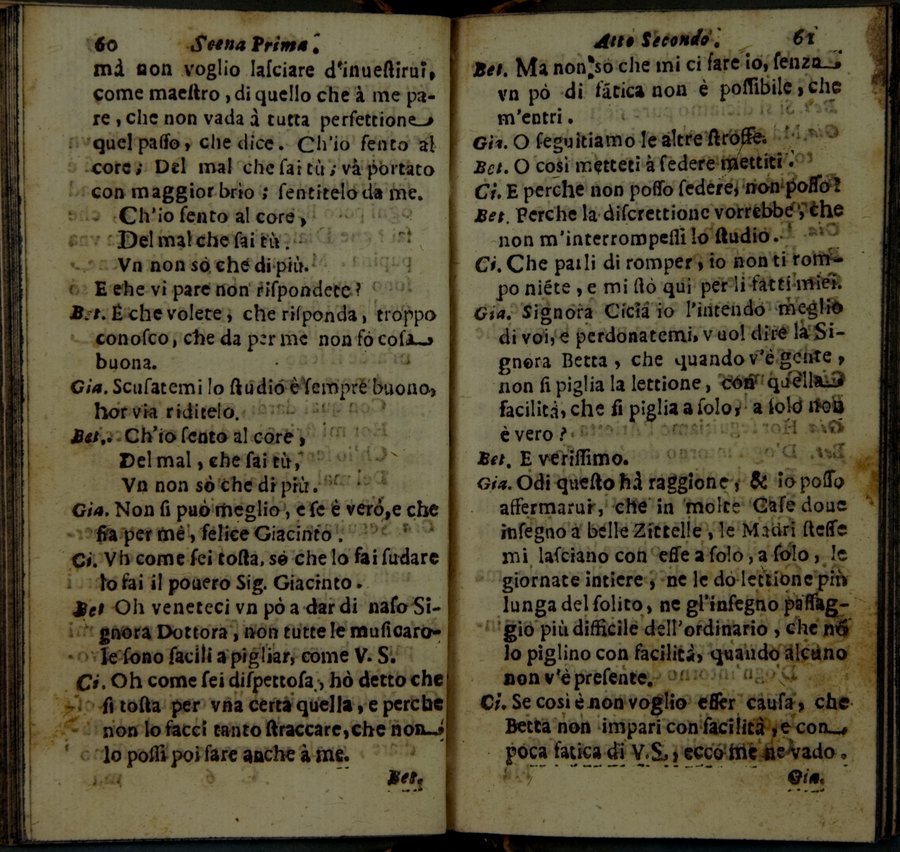 60 Scena Prima.
mà non voglio laſciare d'inueſtirui,
come maeſtro, di quello che à me pa-
re, che non vada à tutta perfettione
quel paſſo, che dice. Ch'io ſento al
core; Del mal che ſai tù; và portato
con maggior brio; ſentitelo da me.
Ch'io ſento al core,
Del mal che ſai tù.
Vn non sò che di più.
E che vi pare non riſpondete?
Bet. E che volete, che riſponda, troppo
conoſco, che da per me non fò coſa
buona.
Gia. Scuſatemi lo ſtudio è ſempre buono,
hor via riditelo.
Bet. Ch'io ſento al core,
Del mal, che ſai tù,
Vn non sò che di più.
Gia. Non ſi può meglio, e ſe è verò, e che
ſia per mè, felice Giacinto.
Ci. Vh come ſei toſta, sò che lo fai ſudare
lo fai il pouero Sig. Giacinto.
Bet Oh veneteci vn pò a dar di naſo Si-
gnora Dottora, non tutte le muſicaro-
le ſono facili a pigliar, come V. S.
Ci. Oh come ſei diſpettoſa, hò detto che
ſi toſta per vna certa quella, e perche
non lo facci tanto ſtraccare, che non
lo poſſi poi fare anche à me.
Bet.
Atto Secondo. 61
Bet. Ma non sò che mi ci fare io, ſenza
vn pò di fatica non è poſſibile, che
m'entri.
Gia. O ſeguitiamo le altre ſtroffe.
Bet. O così metteti à ſedere mettiti.
Ci. E perche non poſſo ſedere, non poſſo?
Bet. Perche la diſcrettione vorrebbe, che
non m'interrompeſſi lo ſtudio.
Ci. Che parli di romper, io non ti rom-
po niéte, e mi ſtò qui per li fatti miei.
Gia. Signora Cicia io l'intendo meglio
di voi, e perdonatemi, vuol dire la Si-
gnora Betta, che quando v'è gente,
non ſi piglia la lettione, con quella
facilità, che ſi piglia a ſolo, a ſolo non
è vero?
Bet. E veriſſimo.
Gia. Odi queſto hà raggione, & io poſſo
affermarui, che in molte Caſe doue
inſegno à belle Zittelle, le Madri ſteſſe
mi laſciano con eſſe a ſolo, a ſolo, le
giornate intiere, ne le dò lettione più
lunga del ſolito, ne gl'inſegno paſſag-
gio più difficile dell'ordinario, che nõ
lo piglino con facilità, quando alcuno
non v'è preſente.
Ci. Se così è non voglio eſſer cauſa, che
Betta non impari con facilità, e con
poca fatica di V.S., ecco me ne vado.
Gia.